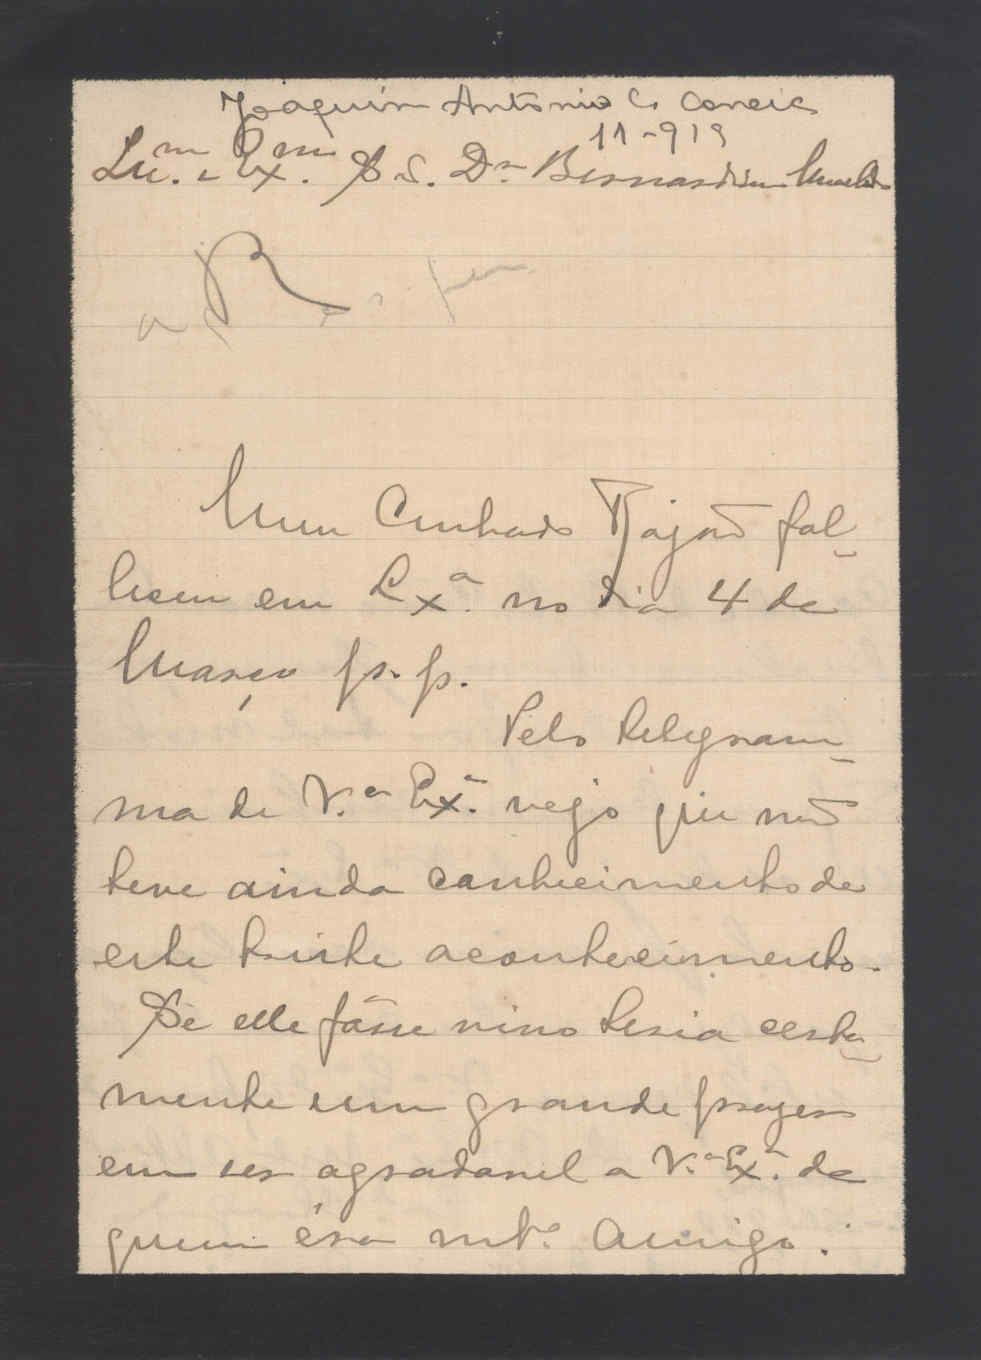 Joaquim Antonio C. Correia
11-919
Illm. e Exm. S S. Dr. Bernardino Machado
R
Meu Cunhado Rajão fal-
leceu em Lxa. no dia 4 de
Março p. p.
Pelo telegram-
ma de V.a Exa. vejo que não
teve ainda conhecimento de
este triste acontecimento.
Se elle fôsse vivo teria certa-
mente um grande prazer
em ser agradavel a V.a Exa. de
quem éra mto. Amigo.